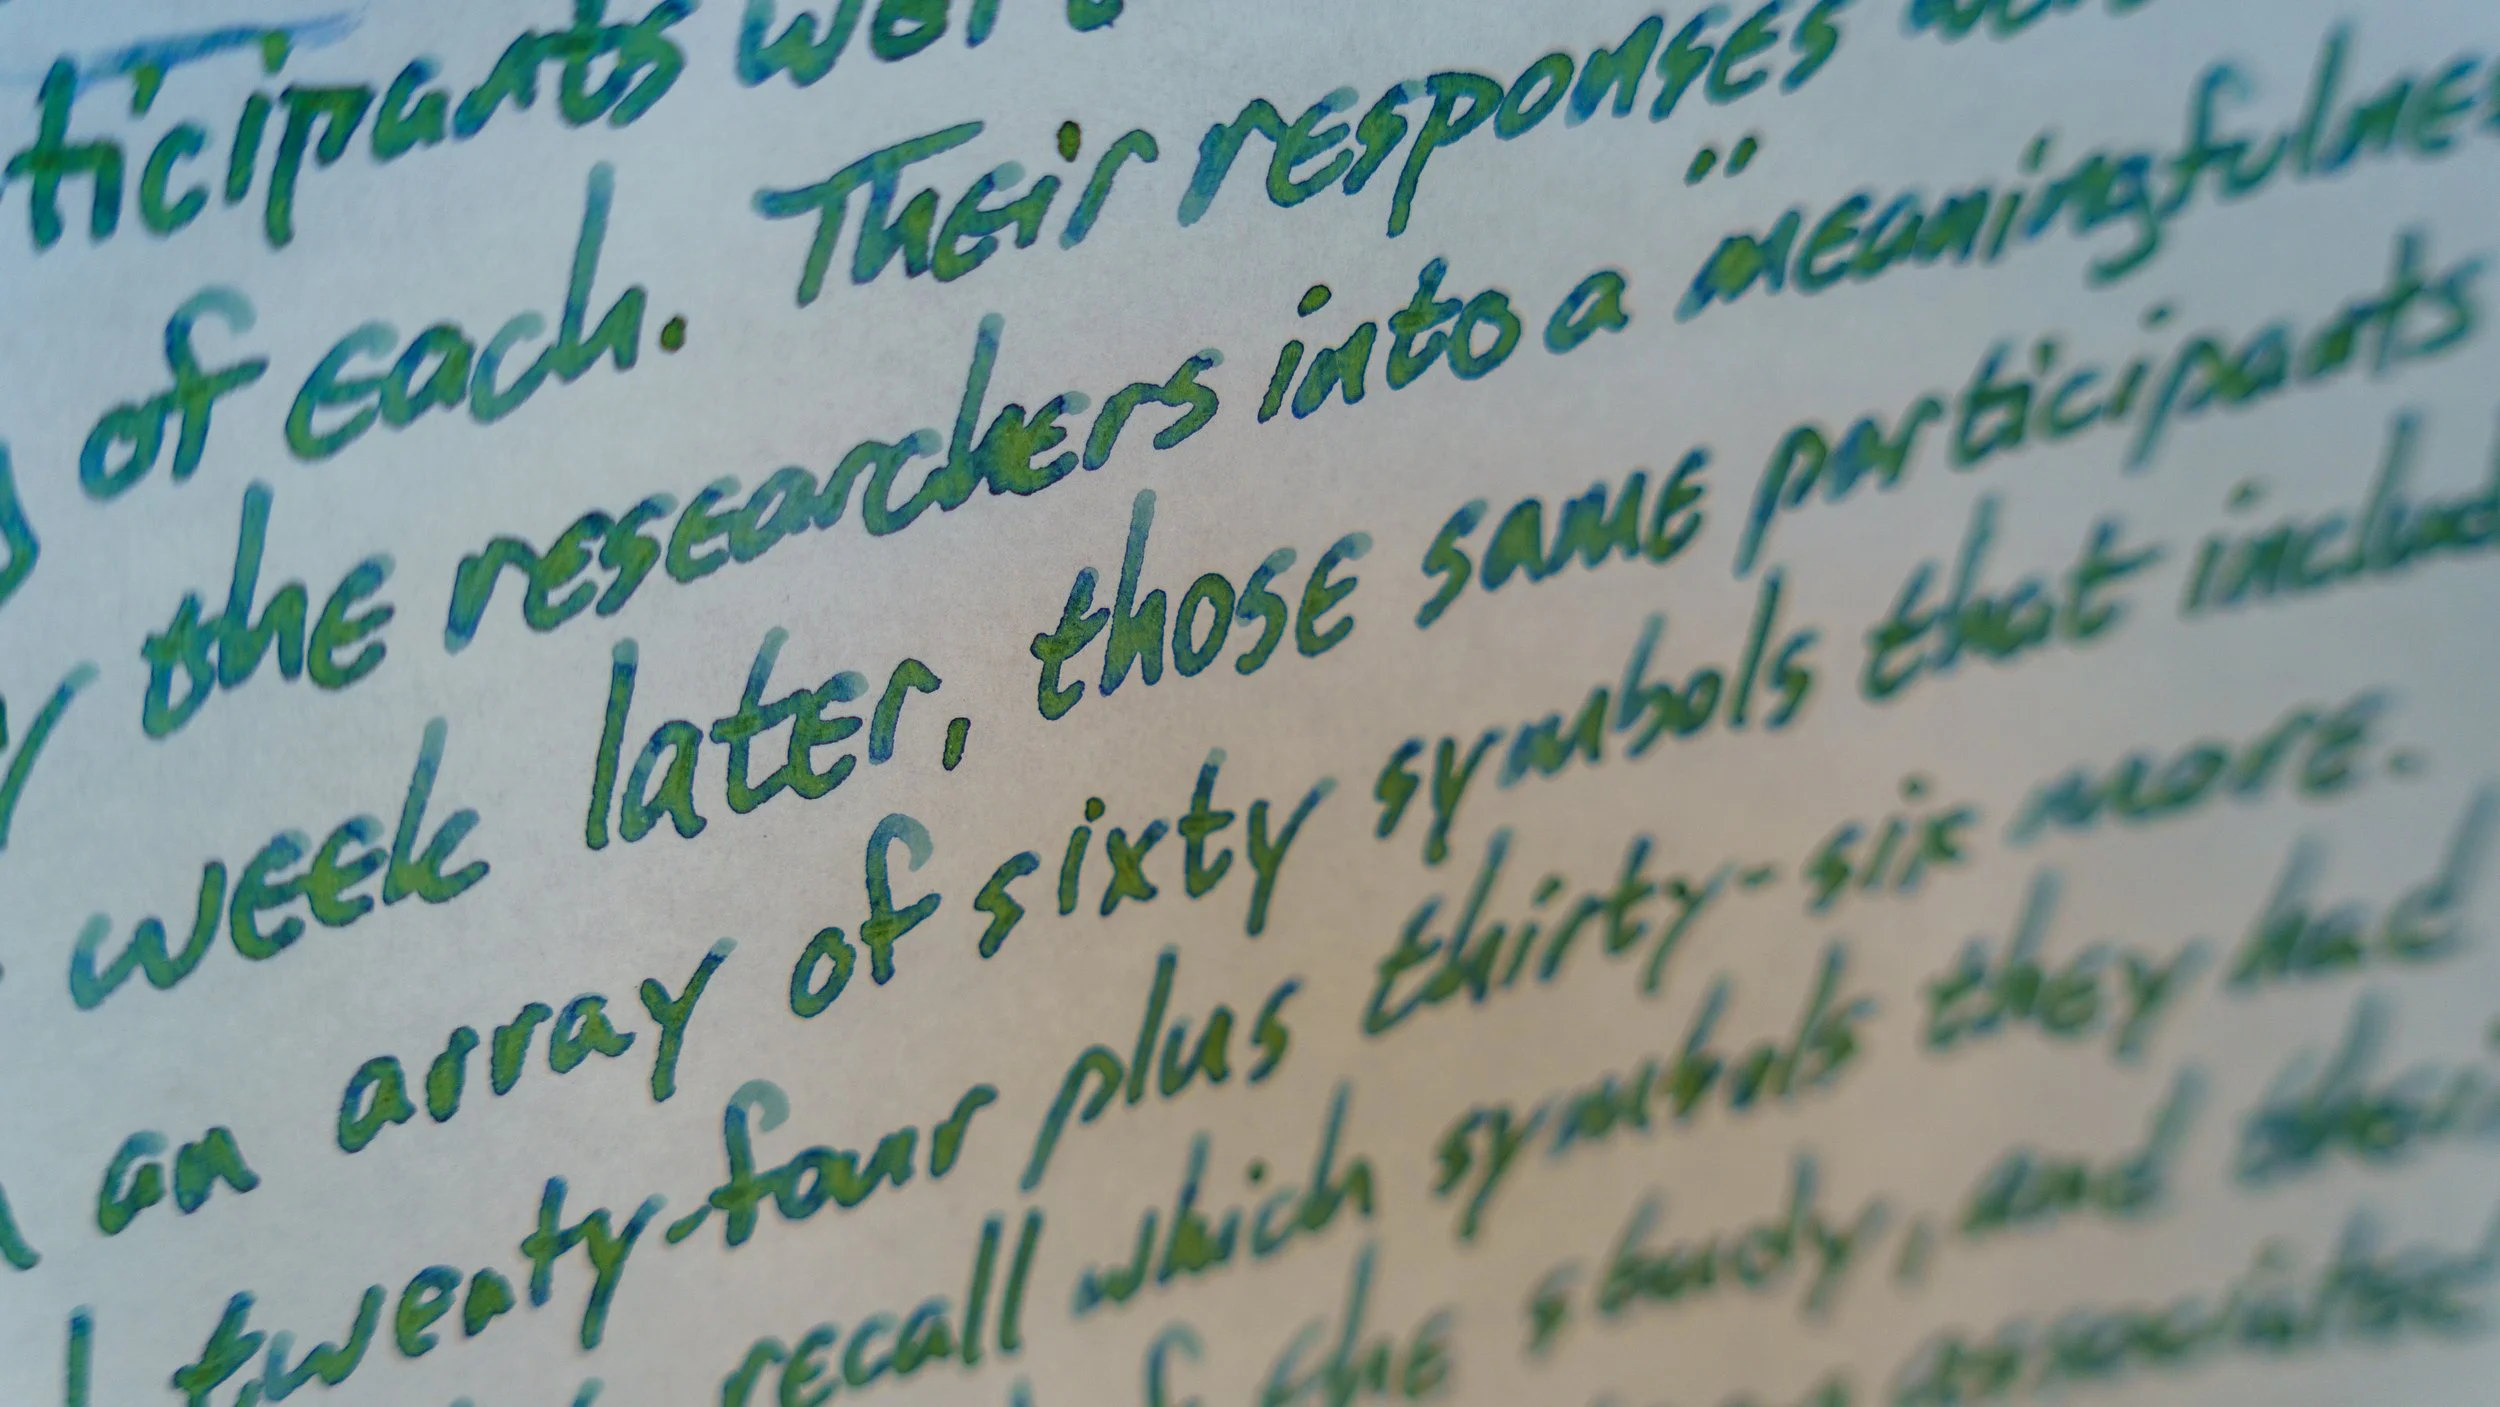 ticipants wer
of each. Their responses wer
the researchers into a "meaningfulnes
week later, those same participants
an array of sixty symbols that includ
twenty-four plus thirty-six more.
recall which symbols they had
f the study, and their
associated